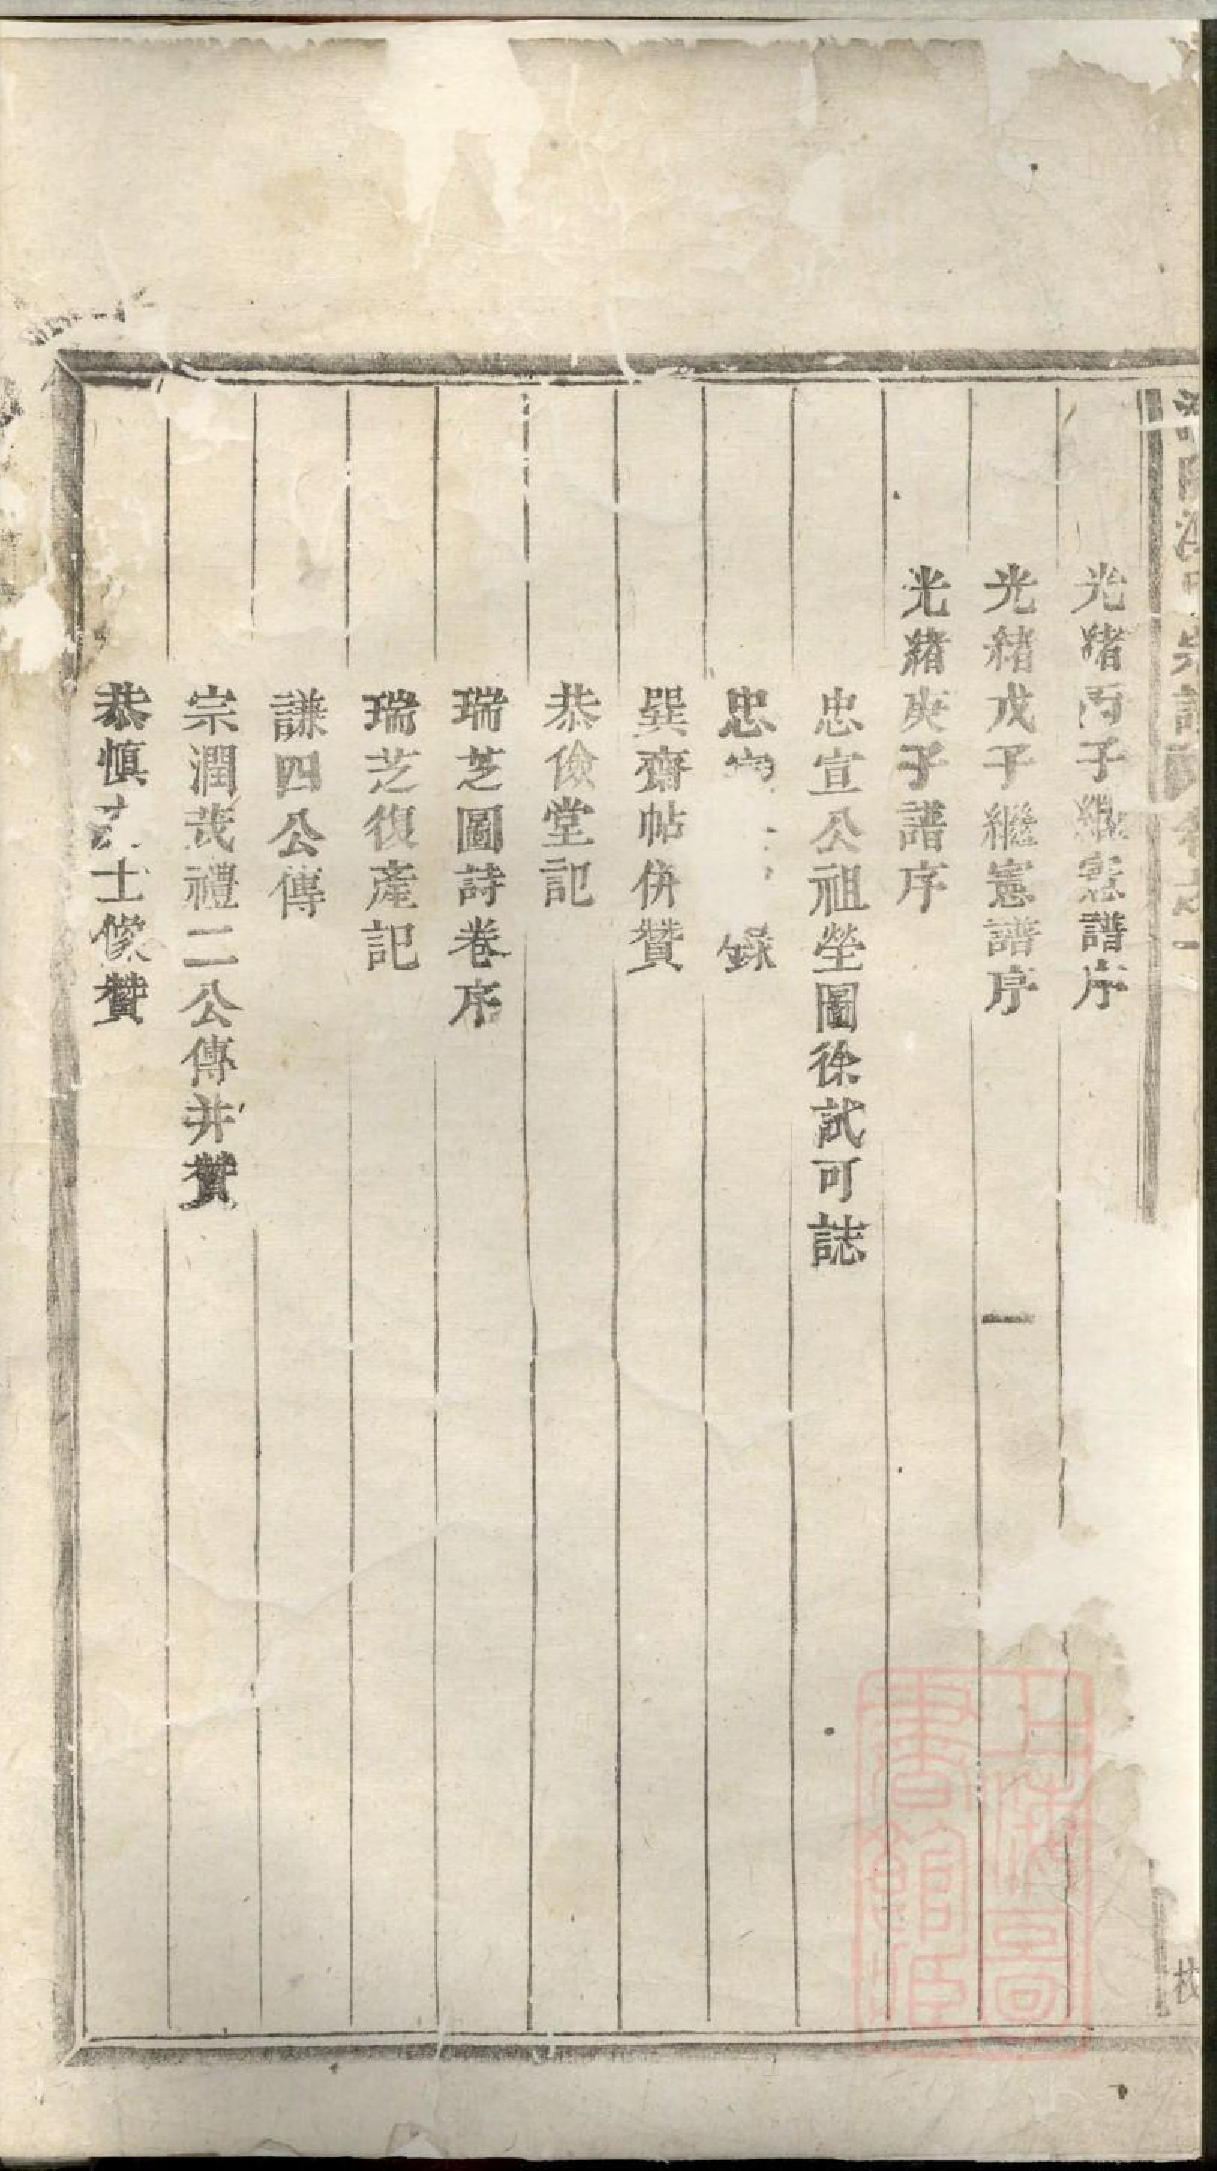 光緒丙子繼憲譜序
光緒戊子繼憲譜序
一
光緒庚子譜序
忠宣公祖塋圖徐試可誌
忠 錄
巽齋帖併贊
恭儉堂記
瑞芝圖詩卷序
瑞芝復產記
謙四公傳
宗潤莪禮二公傳并贊
恭慎 士像贊
上海圖
書館藏